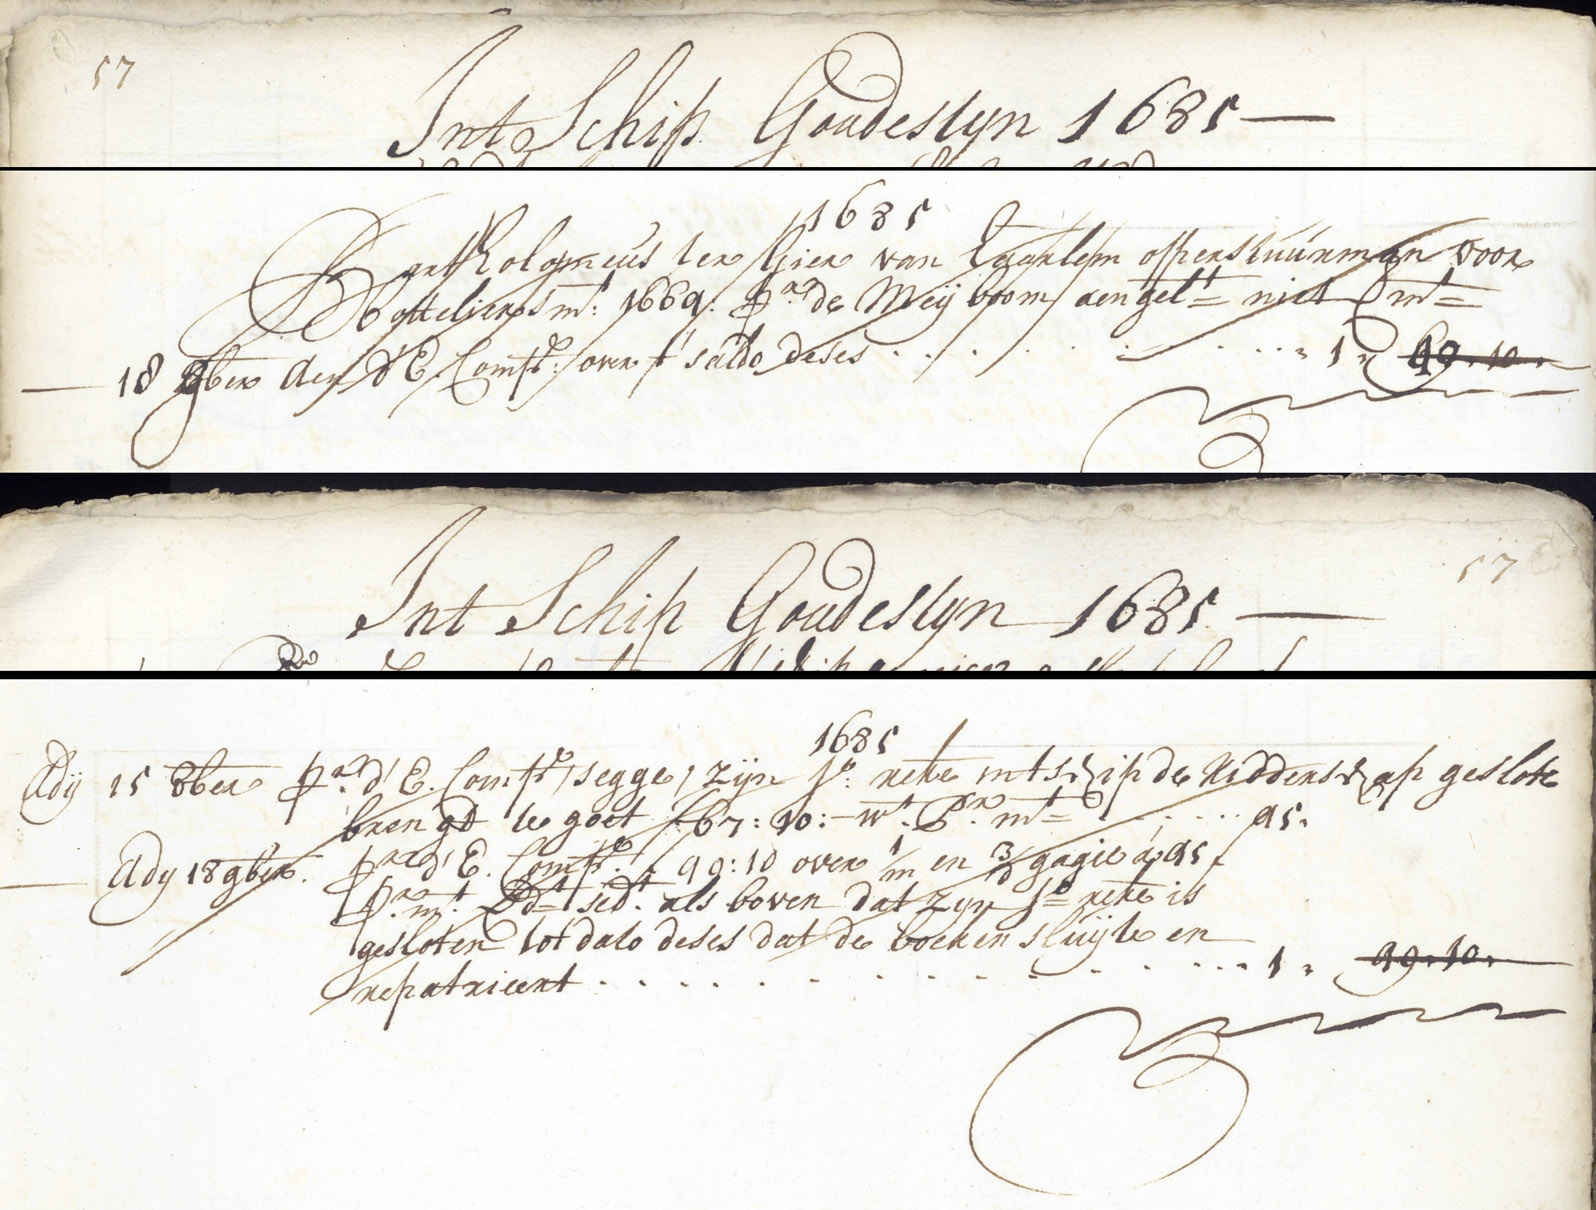 57
Int Schip Goudestyn 1685
1685
Bartholomeus ter Gier van Haarlem opperstuurman voor
Botteliers mt: 1664: pr de Meyboom aengelt niet mt
18 9ber Aen d'E. Comp: over t' saldo deses . . . . . 1 " 49. 10.
57
Int Schip Goudestyn 1685
1685
Ady 15 8ber pr d'E. Comp / segge / zyn So reke int schip de Ridderschap geslote
brengd te goet f 67: 10: - Wt. Pr. mt . . . . 45.
Ady 18 9ber. pr d'E. Comp: 49: 10 over 1/m en 3/d gagie á 45 f
pr. mt. sedt. als boven dat zyn So reke is
gesloten tot dato deses dat de boeken sluyte en
repatrieert . . . . . . . . . . . 1 " 49. 10.